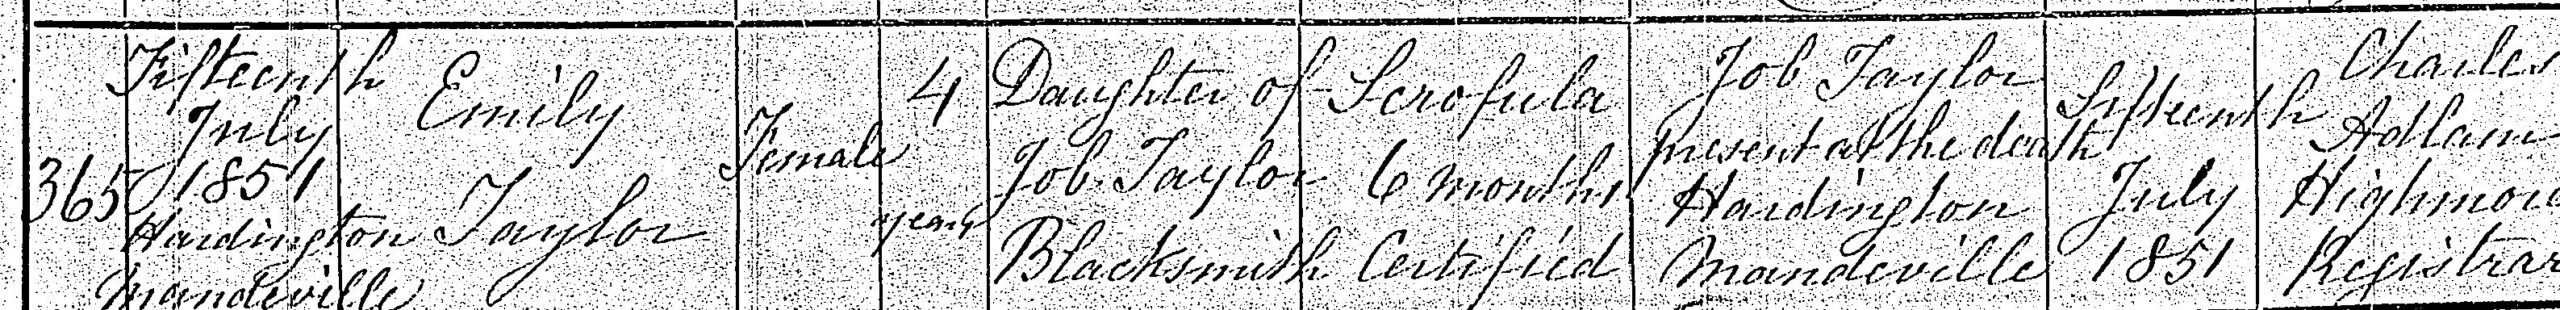 365
Fifteenth
July
1851
Hardington
Mandeville
Emily
Taylor
Female
4
years
Daughter of
Job Taylor
Blacksmith
Scrofula
6 months
Certified
Job Taylor
present at the death
Hardington
Mandeville
Fifteenth
July
1851
Charles
Adlam
Highmore
Registrar